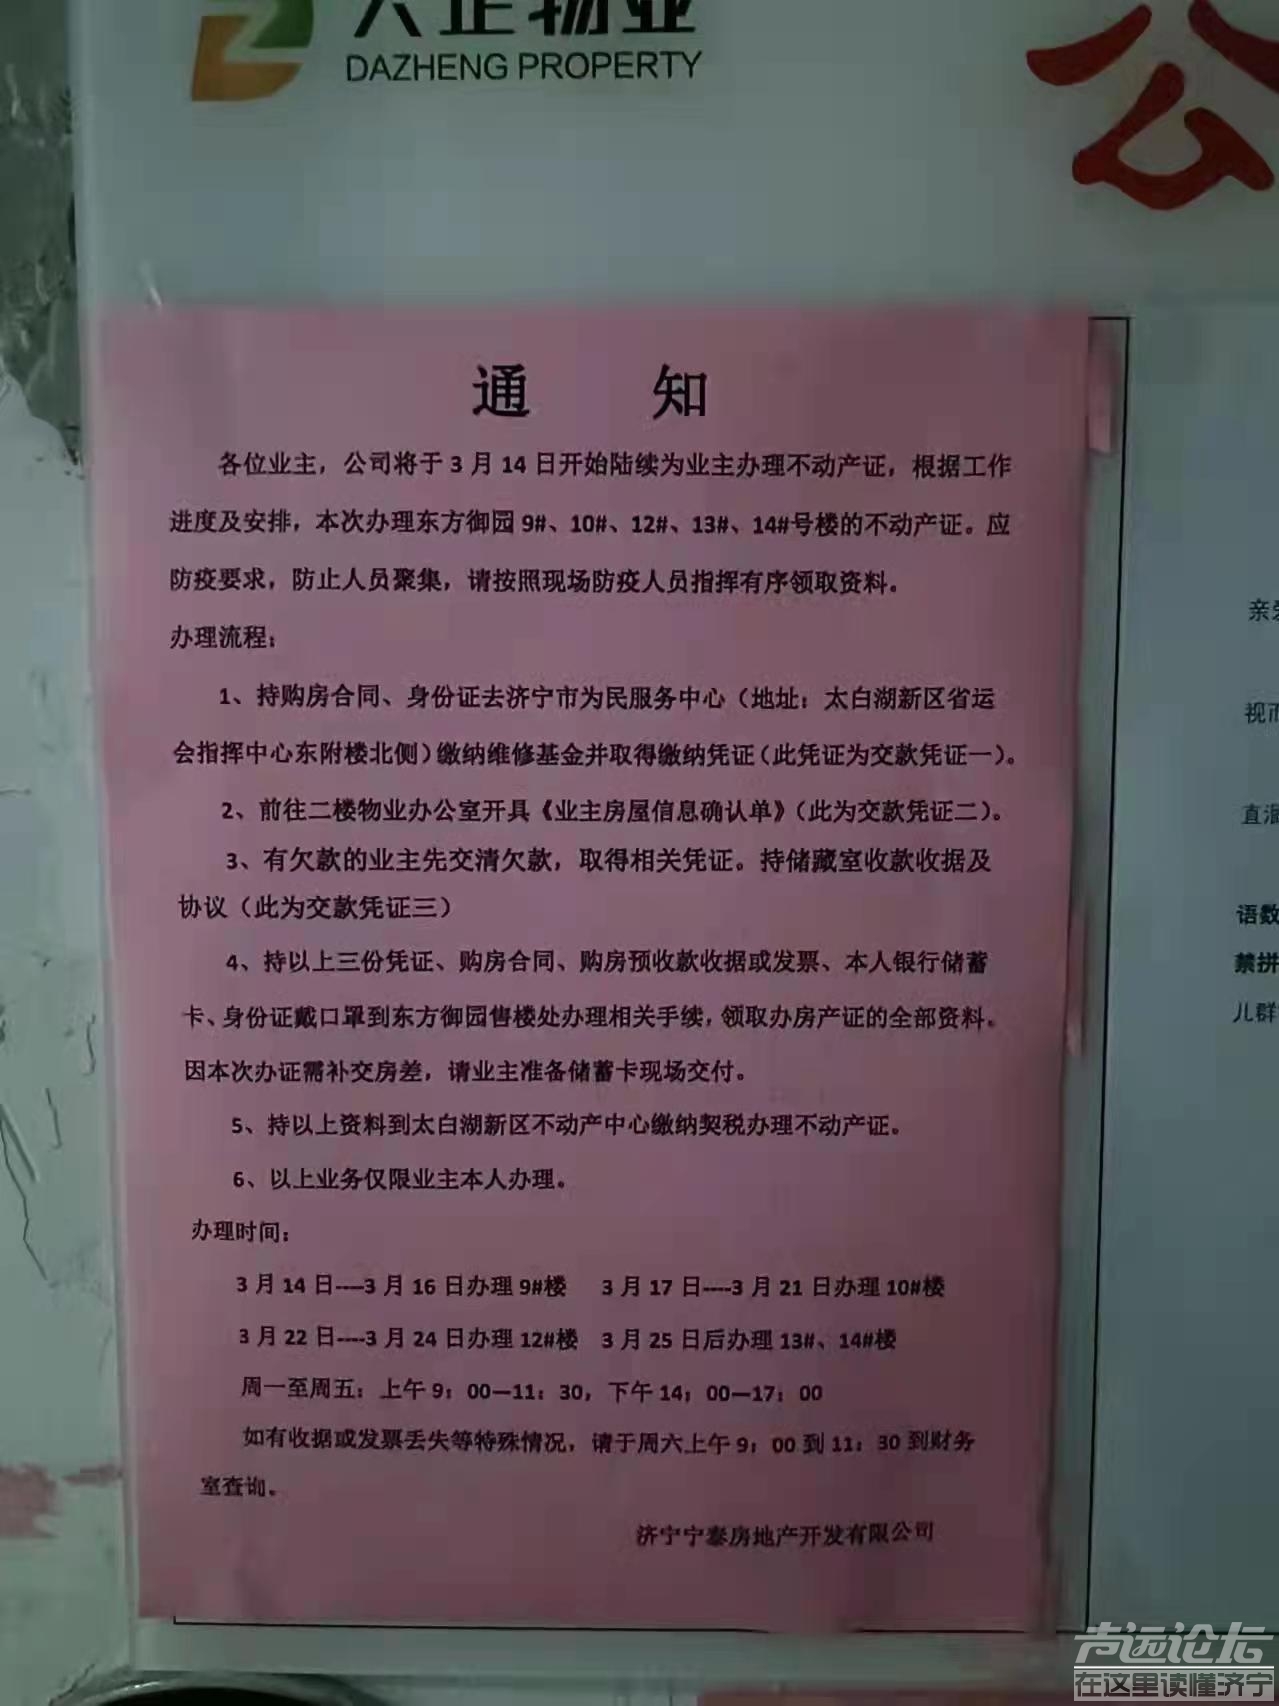 物业
DAZHENG PROPERTY
公
通 知
各位业主，公司将于 3 月 14 日开始陆续为业主办理不动产证，根据工作
进度及安排，本次办理东方御园 9#、10#、12#、13#、14#号楼的不动产证。应
防疫要求，防止人员聚集，请按照现场防疫人员指挥有序领取资料。
办理流程：
1、持购房合同、身份证去济宁市为民服务中心（地址：太白湖新区省运
会指挥中心东附楼北侧）缴纳维修基金并取得缴纳凭证（此凭证为交款凭证一）。
2、前往二楼物业办公室开具《业主房屋信息确认单》（此为交款凭证二）。
3、有欠款的业主先交清欠款，取得相关凭证。持储藏室收款收据及
协议（此为交款凭证三）
4、持以上三份凭证、购房合同、购房预收款收据或发票、本人银行储蓄
卡、身份证戴口罩到东方御园售楼处办理相关手续，领取办房产证的全部资料。
因本次办证需补交房差，请业主准备储蓄卡现场交付。
5、持以上资料到太白湖新区不动产中心缴纳契税办理不动产证。
6、以上业务仅限业主本人办理。
办理时间：
3 月 14 日----3 月 16 日办理 9#楼 3 月 17 日----3 月 21 日办理 10#楼
3 月 22 日----3 月 24 日办理 12#楼 3 月 25 日后办理 13#、14#楼
周一至周五：上午 9：00—11：30，下午 14；00—17：00
如有收据或发票丢失等特殊情况，请于周六上午 9：00 到 11：30 到财务
室查询。
济宁宁泰房地产开发有限公司
亲
视而
直
语数
禁拼
儿群
声远论坛
在这里读懂济宁